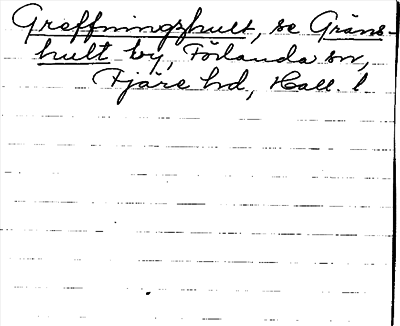 Greffningshult, se Gräns-
hult by, Förlanda sn,
Fjäre hd, Hall. l